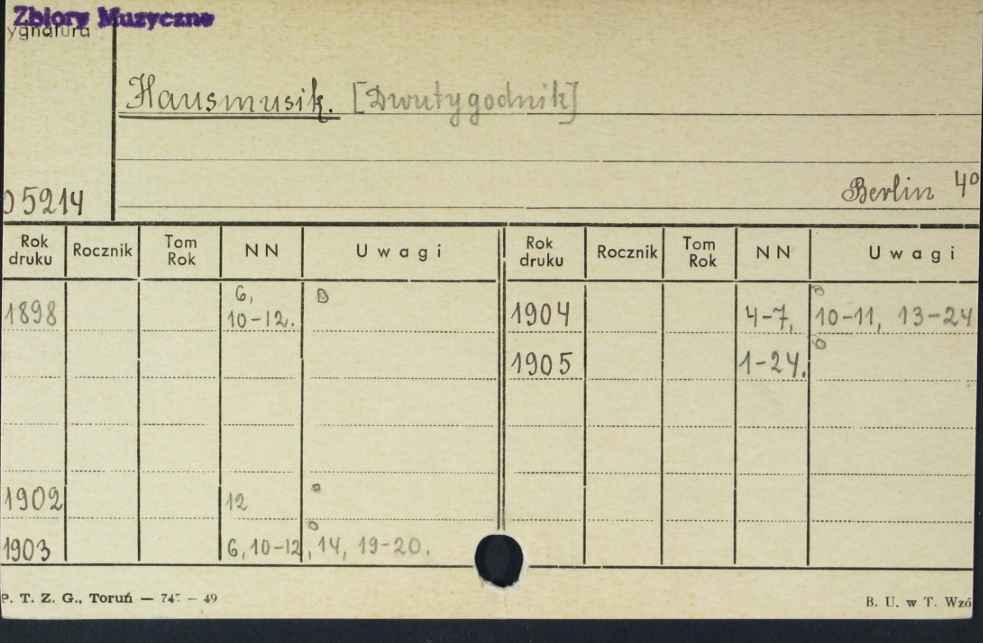 Zbiory Muzyczne
ygnatura
Hausmusik. [Dwutygodnik]
05214
Berlin 4º
Rok druku Rocznik Tom Rok NN Uwagi Rok druku Rocznik Tom Rok NN Uwagi
1898 6, 10-12. 1904 4-7, 10-11, 13-24
1905 1-24.
1902 12
1903 6, 10-12, 14, 19-20.
P. T. Z. G., Toruń — 747 — 49
B. U. w T. Wzó